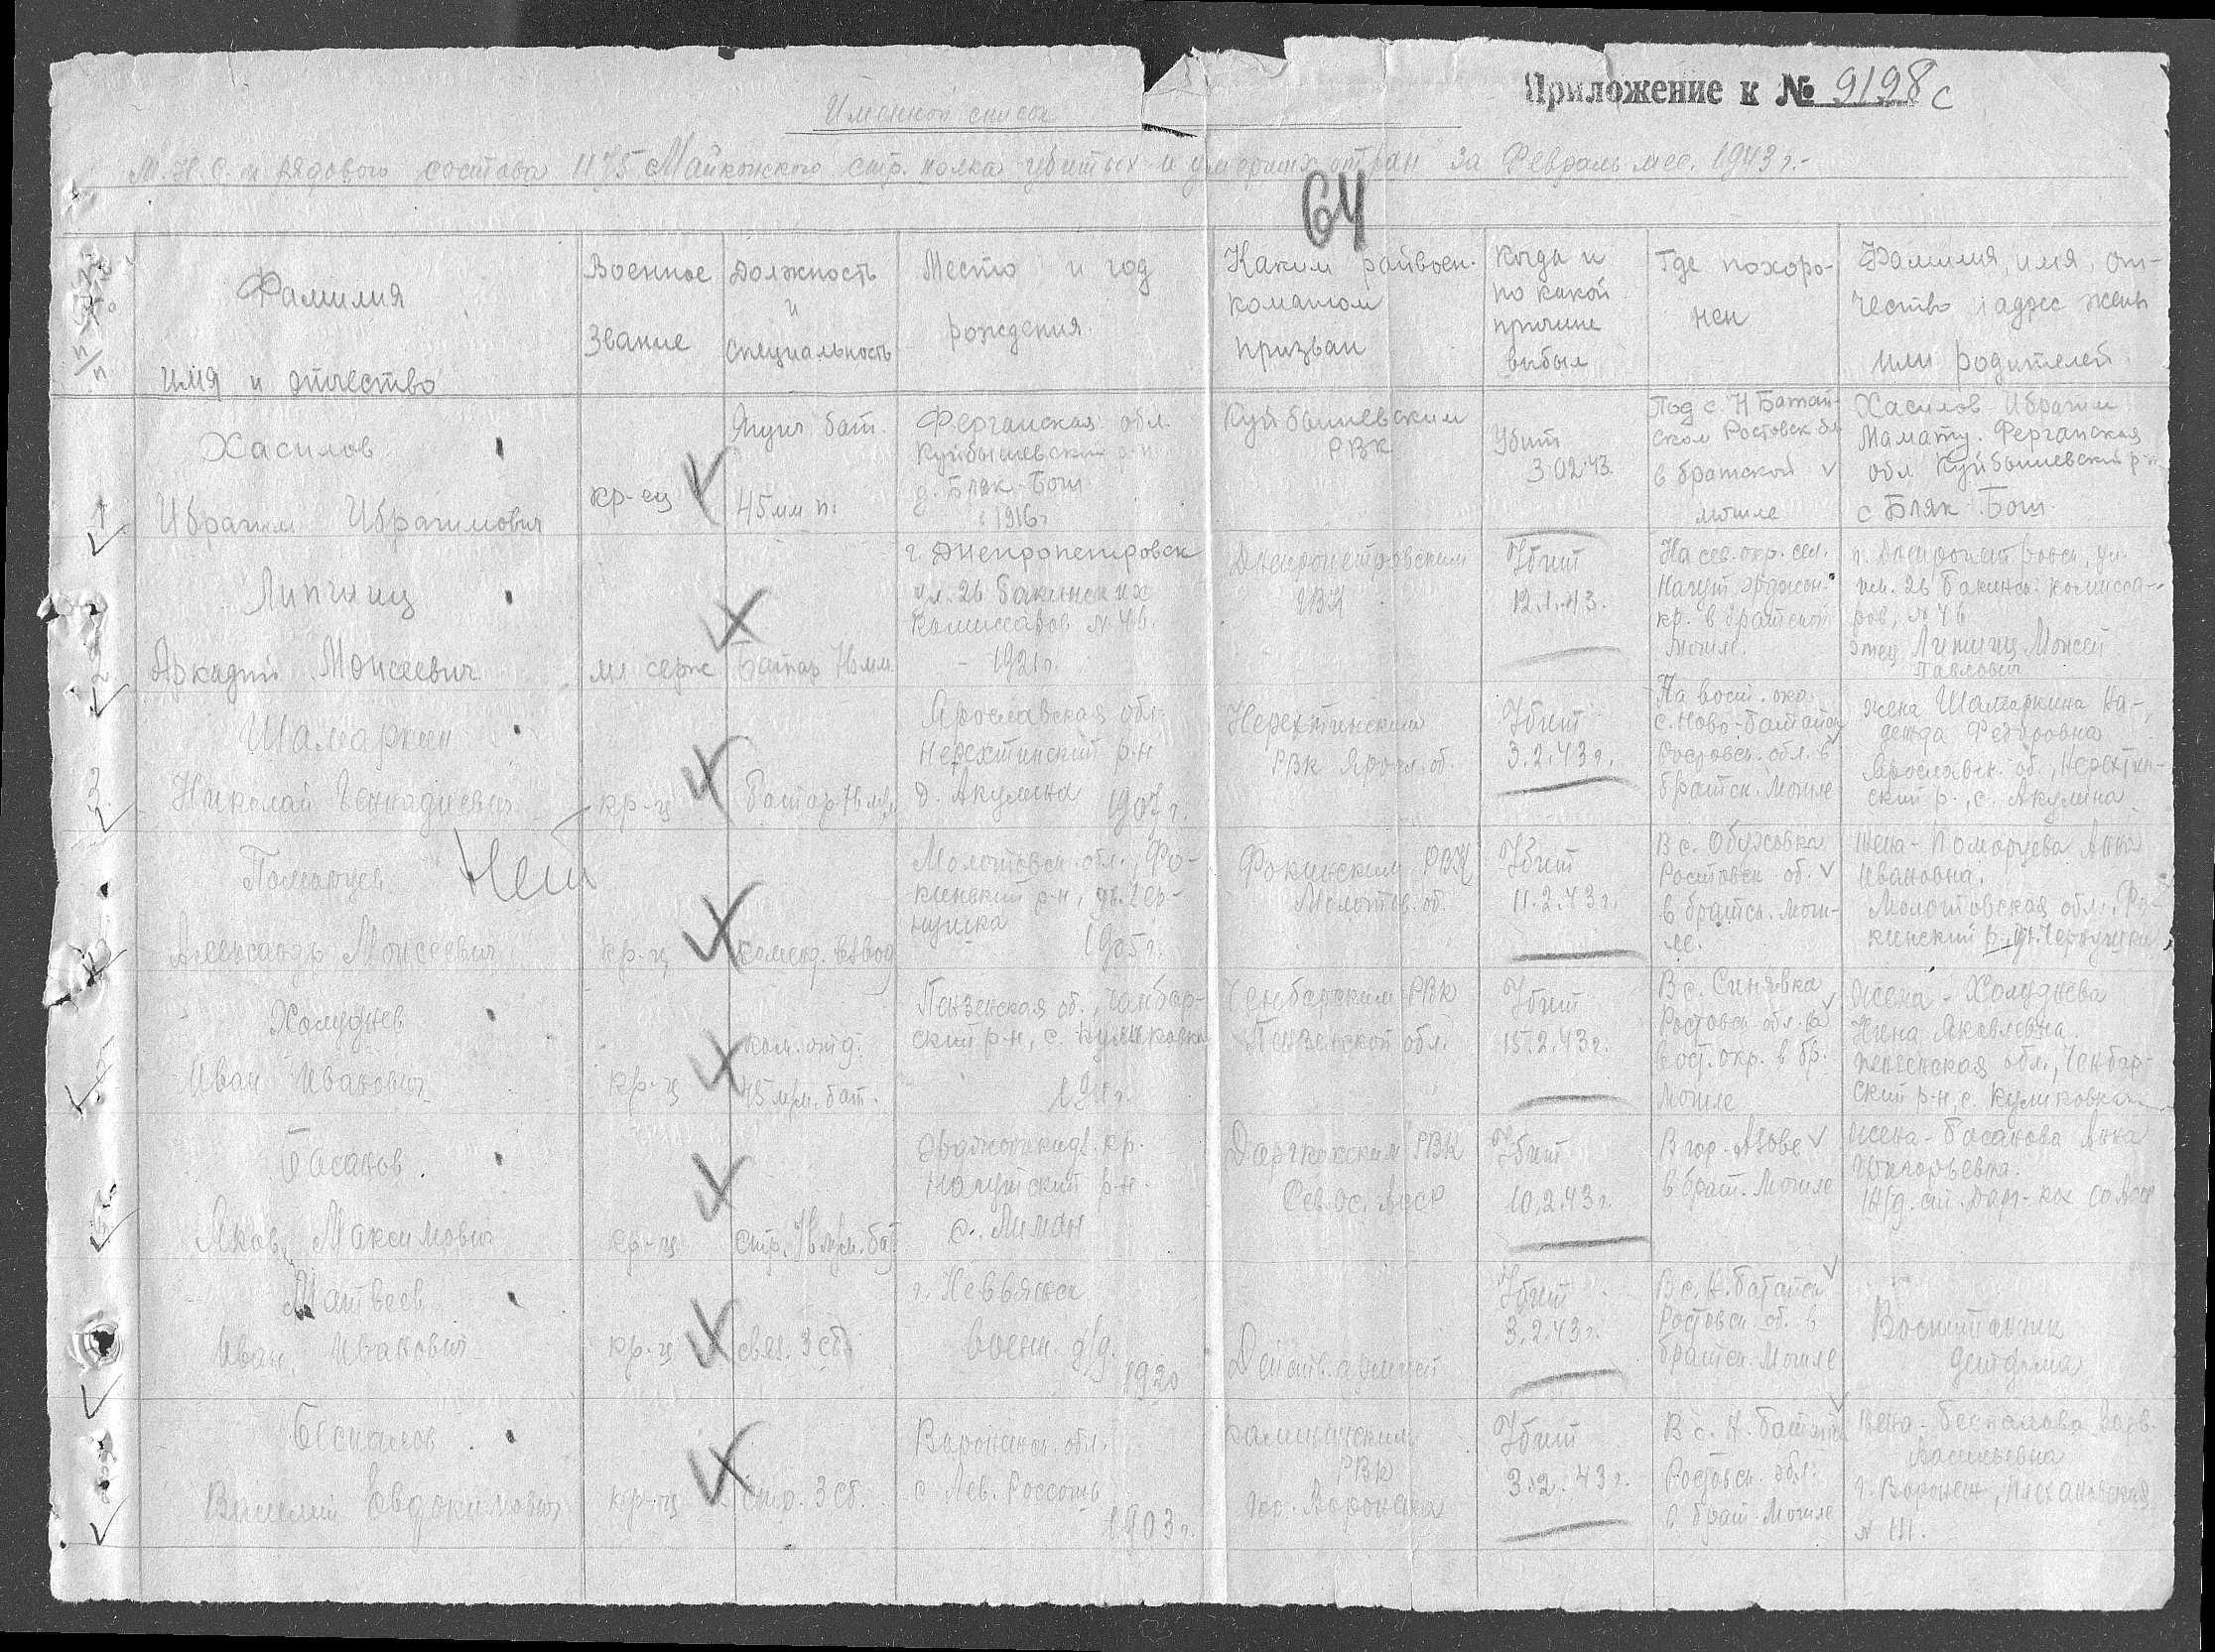 Приложение к № 9198с
Именной список
М.Н.С. и рядового состава 1175 Майкопского стр. полка убитых и умерших от ран за Февраль мес. 1943 г.-
64
№ п/п
Фамилия
имя и отчество
Военное
звание
Должность
и
специальность
Место и год
рождения
Каким райвоен-
коматом
призван
Когда и
по какой
причине
выбыл
Где похоро-
нен
Фамилия, имя, от-
чество и адрес жены
или родителей
1
Хасилов
Ибрагим Ибрагимович
кр-ец
бат.
45мм п.
Ферганская обл.
Куйбышевский р-н
д. Бляк-Бош
1916г
Куйбышевским
РВК
Убит
3.02.43.
Под с. Н Батай-
ском Ростовск. обл
в братской
могиле
Хасилов Ибрагим
Мамату. Ферганская
обл Куйбышевский р-н
с Бляк-Бош.
2
Липчиц
Аркадий Моисеевич
мл серж
Батар 76мм.
г. Днепропетровск
ул. 26 Бакинских
Комиссаров № 46.
- 1921г.
Днепропетровским
ГВК
Убит
12.1.43.
На сев. окр. сел.
Нагут Орджон.
кр. в братской
могиле.
г. Днепропетровск, ул.
им. 26 Бакинс. комисса-
ров, № 46
отец Липчиц Моисей
Павлович
3.
Шамаркин
Николай Геннадиевич
кр-ц
Батар 76мм.
Ярославская обл.
Нерехтинский р-н
д. Акулина 1907 г.
Нерехтинским
РВК Яросл. об.
Убит
3.2.43г.
На вост. окр.
с. Ново-Батайск
Ростовск. обл. в
братск. могиле
жена Шамаркина На-
дежда Федоровна
Ярославск. об., Нерехтин-
ский р., с. Акулина
Поморцев Нет
Александр Моисеевич
кр-ц
коменд. взвод
Молотовск. обл., Фо-
кинский р-н, дь. Чер-
нушка
1905г.
Фокинским РВК
Молотов. об.
Убит
11.2.43г.
В с. Обуховка
Ростовск. об.
в братск. моги-
ле.
Жена - Поморцева Анна
Ивановна.
Молотовская обл., Фо-
кинский р. дь. Чернушка
Холуднев
Иван Иванович
кр-ц
ком. отд.
45 м/м. бат.
Пензенская об., Чембар-
ский р-н, с. Куликовка
1911г.
Чембарским РВК
Пензенской обл.
Убит
15.2.43г.
В с. Синявка
Ростовск. обл. на
вост. окр. в бр.
могиле
Жена - Холуднева
Нина Яковлевна.
Пензенская обл., Чембар-
ский р-н, с. Куликовка
6.
Басанов
Яков Максимович
кр-ц
стр. 76 м/м. бат.
Орджоникидз. кр.
Нагутский р-н.
с. Лиман
Даргкохским РВК
Сев. Ос. АССР
Убит
10.2.43г.
В гор. Азове
в брат. могиле
Жена - Басанова Анна
Григорьевна.
Ж/д. ст. Дарг-Кох СОАССР
Матвеев
Иван Иванович
кр-ц
связ. 3 сб.
г. Невьянск
воен. д/д.
1920
Действ. армией
Убит
3.2.43г.
В с. Н. Батайск
Ростовск. об. в
братск. могиле
Воспитанник
детдома
8
Беспалов
Василий Евдокимович
кр-ц
стр. 3 сб.
Воронежск. обл.
с Лев. Россошь
1903г.
РВК
гор. Воронежа
Убит
3.2.43г.
В с. Н. Батайск
Ростовск. обл.
в брат. могиле
Жена - Беспалова Варв.
Васильевна
г. Воронеж,
№ 111.